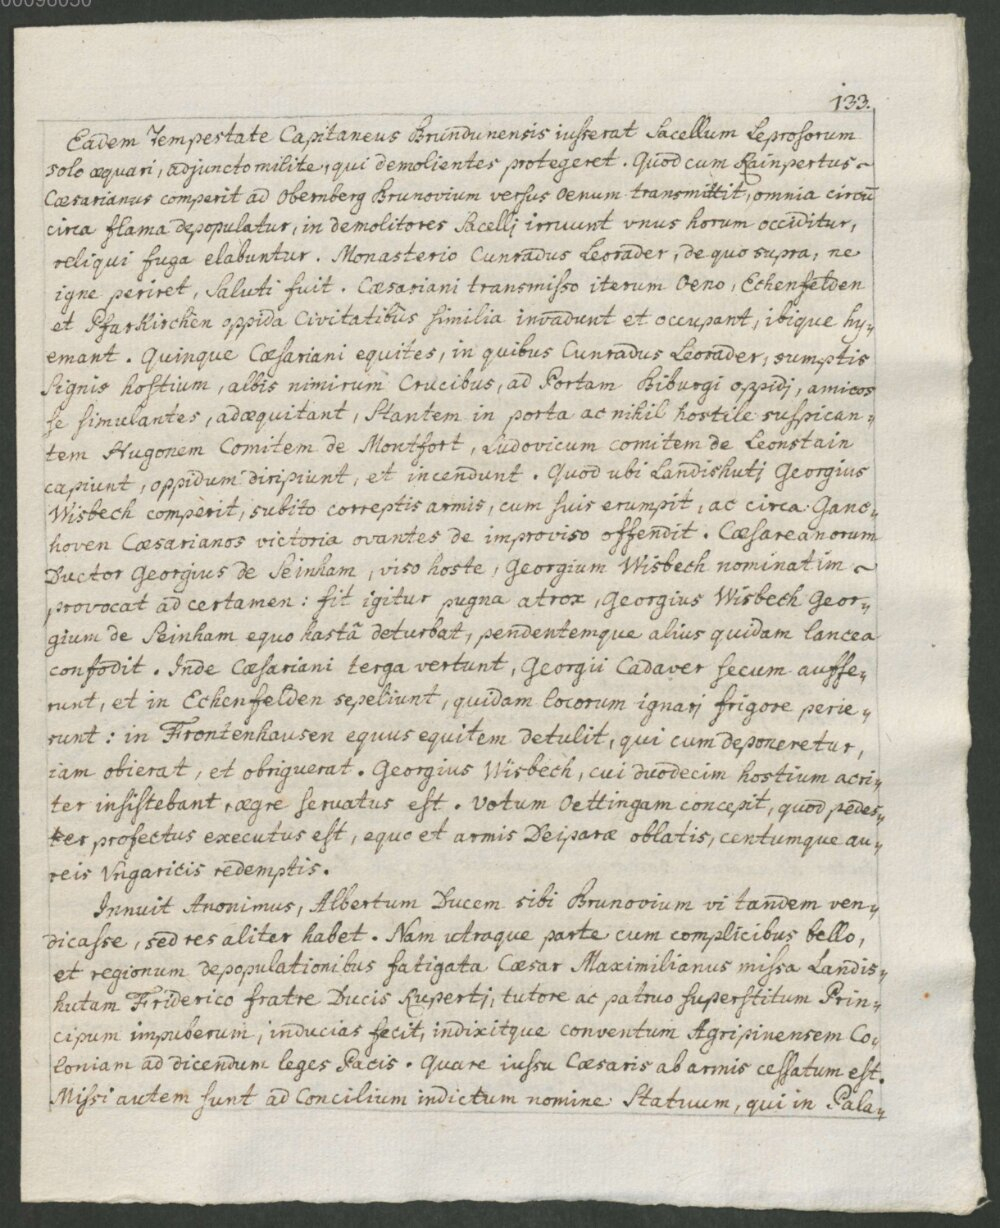 00096050
133.
Eadem Tempestate Capitaneus Brundunensis iusserat Sacellum Leprosorum
solo æquari, adjuncto milite, qui demolientes protegeret. Quod cum Rainpertus
Cæsarianus comperit ad Obernberg Brunovium versus Oenum transmittit, omnia circū
circa flama depopulatur, in demolitores Sacellj irruunt vnus horum occiditur,
reliqui fuga elabuntur. Monasterio Cunradus Leorader, de quo supra, ne
igne periret, Saluti fuit. Cæsariani transmisso iterum Oeno, Echenfelden
et Pfarkirchen oppida Civitatibus similia invadunt et occupant, ibique hy„
emant. Quinque Cæsariani equites, in quibus Cunradus Leorader, sumptis
Signis hostium, albis nimirum Crucibus, ad Portam Biburgi oppidj, amicos
se simulantes, adæquitant, Stantem in porta ac nihil hostile suspican„
tem Hugonem Comitem de Montfort, Ludovicum comitem de Leonstain
capiunt, oppidum diripiunt, et incendunt. Quod ubi Landishutj Georgius
Wisbech comperit, subito correptis armis, cum suis erumpit, ac circa Gano„
hoven Cæsarianos victoria ovantes de improviso offendit. Cæsareanorum
Ductor Georgius de Seinham, viso hoste, Georgium Wisbech nominatim
provocat ad certamen: fit igitur pugna atrox, Georgius Wisbech Geor„
gium de Seinham equo hastâ deturbat, pendentemque alius quidam lancea
confodit. Inde Cæsariani terga vertunt, Georgii Cadaver secum auffe„
runt, et in Echenfelden sepeliunt, quidam locorum ignarj frigore perie„
runt: in Frontenhausen equus equitem detulit, qui cum deponeretur,
iam obierat, et obriguerat. Georgius Wisbech, cui duodecim hostium acri„
ter insistebant, ægre servatus est. Votum Oettingam concepit, quod pedes„
ter profectus executus est, equo et armis Deiparæ oblatis, centumque au„
reis Vngaricis redemptis.
Innuit Anonimus, Albertum Ducem sibi Brunovium vi tandem ven„
dicasse, sed res aliter habet. Nam utraque parte cum complicibus bello,
et regionum depopulationibus fatigata Cæsar Maximilianus missa Landis„
hutam Friderico fratre Ducis Rupertj, tutore ac patruo superstitum Prin„
cipum impuberum, inducias fecit, indixitque conventum Agripinensem Co„
loniam ad dicendum leges Pacis. Quare iussu Cæsaris ab armis cessatum est.
Missi autem sunt ad Concilium indictum nomine Statuum, qui in Pala„